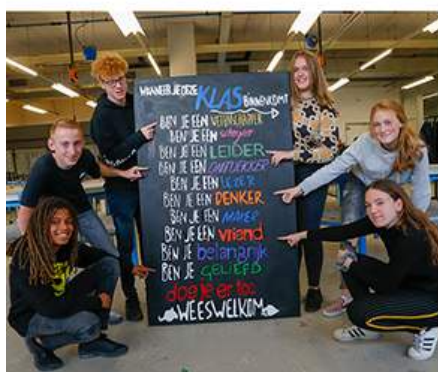 WANNEER JE DEZE KLAS BINNENKOMT
BEN JE EEN WETENSCHAPPER
BEN JE EEN schrijver
BEN JE EEN LEIDER
BEN JE EEN ONTDEKKER
BEN JE EEN LEZER
BEN JE EEN DENKER
BEN JE EEN MAKER
BEN JE EEN vriend
BEN JE belangrijk
BEN JE GELIEFD
doe je er toe
WEES WELKOM